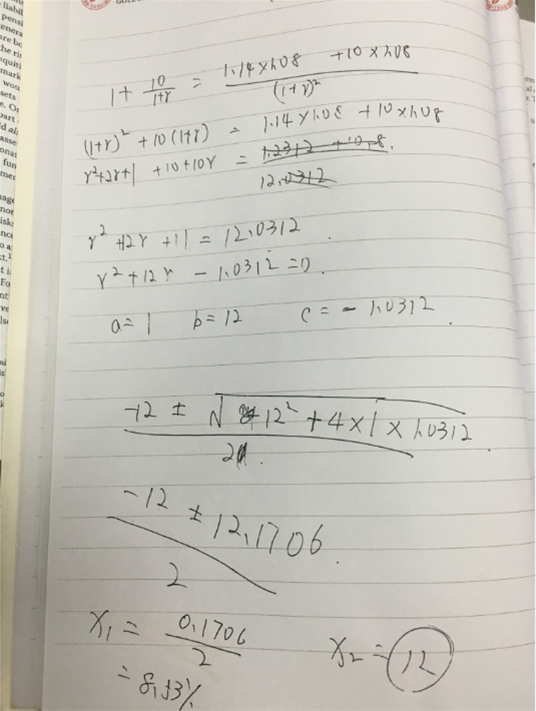 1 + 10/(1+r) = (1.14×1.08 + 10×1.08)/(1+r)²
(1+r)² + 10(1+r) = 1.14×1.08 + 10×1.08
r²+2r+1 + 10+10r = 1.2312 + 10.8.
12.0312
r² +12r +11 = 12.0312
r² +12r - 1.0312 = 0.
a=1 b=12 c= - 1.0312.
(-12 ± √(12² + 4×1×1.0312))/2
(-12 ± 12.1706)/2
x₁ = 0.1706/2 x₂ = 12
= 8.53%